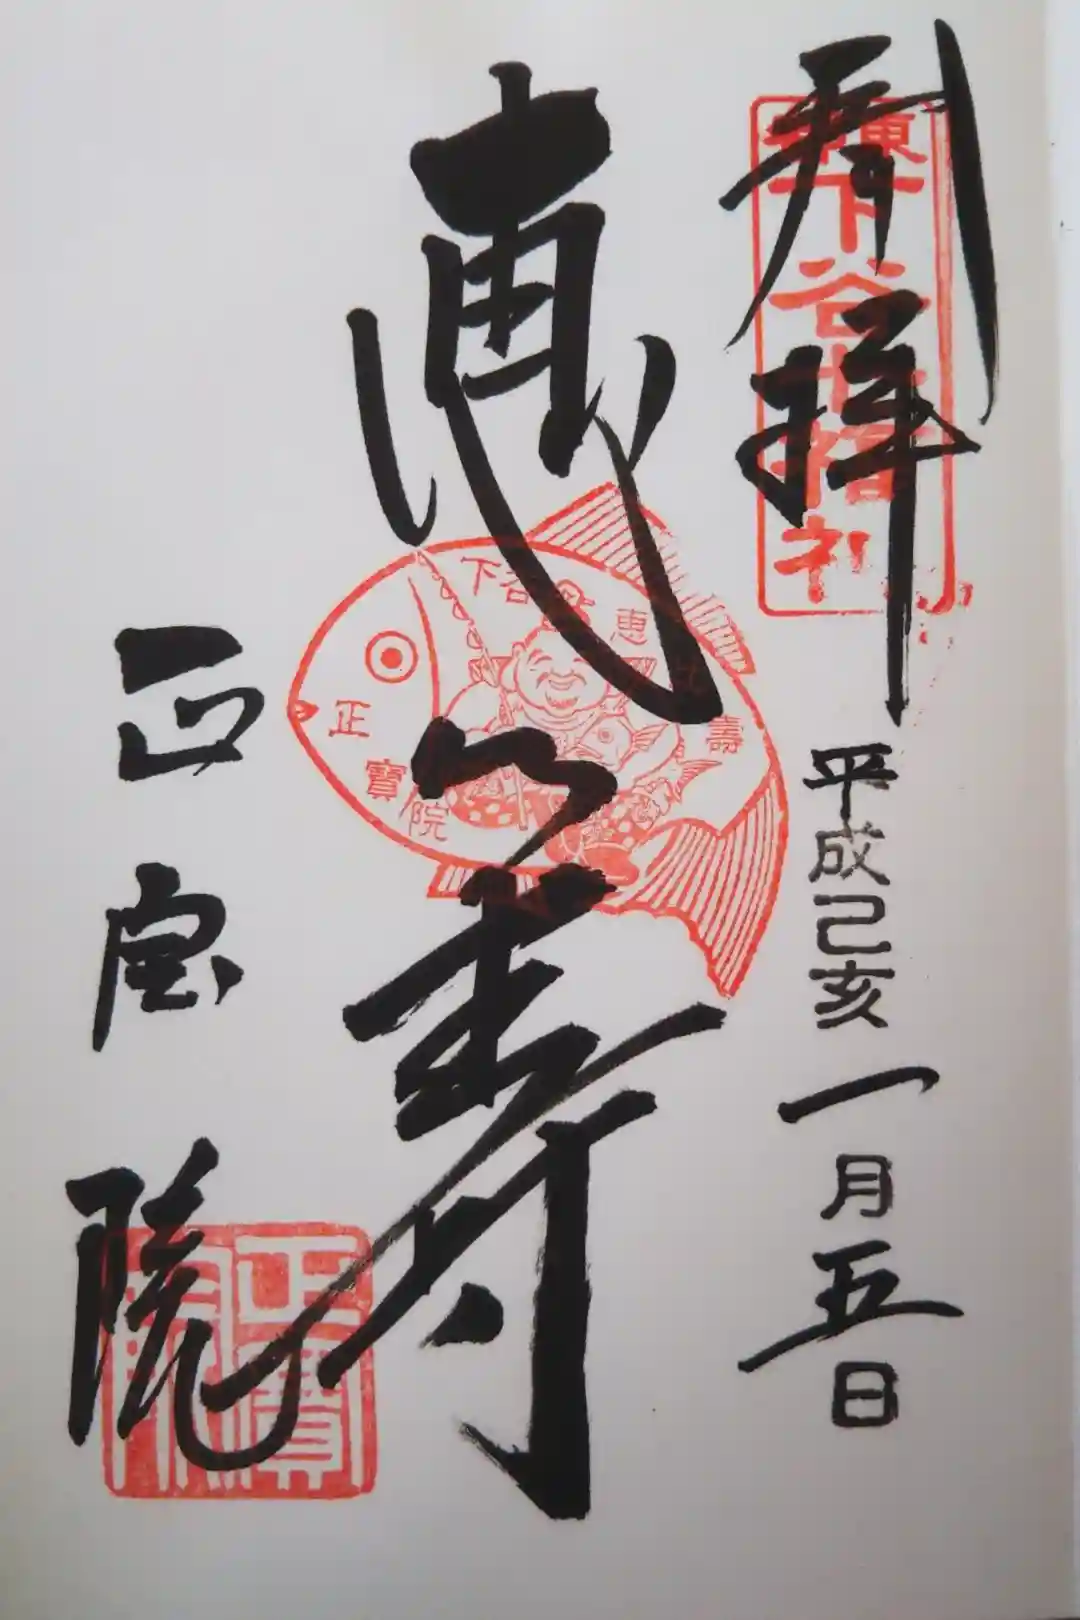 奉拝
東京下谷七福神
平成己亥一月五日
恵比寿
下谷
恵比壽
正寶院
正宝院
正寶院